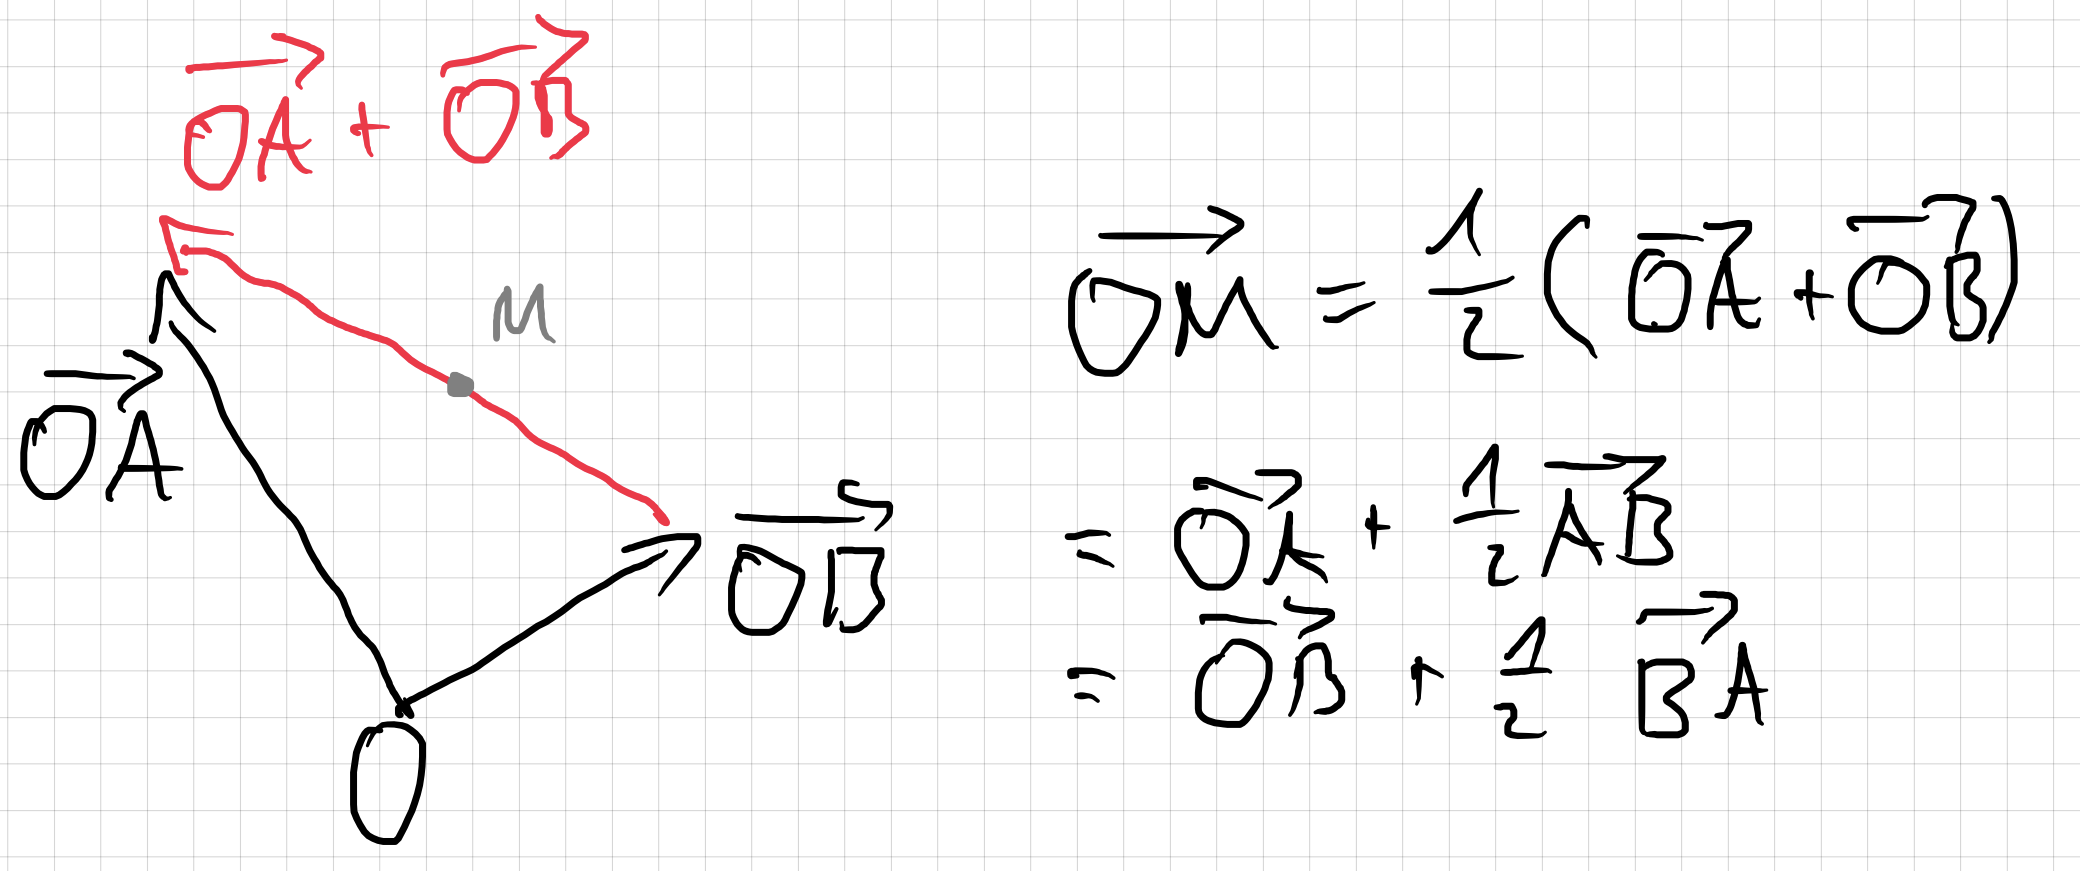 $\overrightarrow{OA} + \overrightarrow{OB}$
M
$\overrightarrow{OA}$
$\overrightarrow{OB}$
O
$\overrightarrow{OM} = \frac{1}{2}(\overrightarrow{OA} + \overrightarrow{OB})$
$= \overrightarrow{OA} + \frac{1}{2}\overrightarrow{AB}$
$= \overrightarrow{OB} + \frac{1}{2}\overrightarrow{BA}$